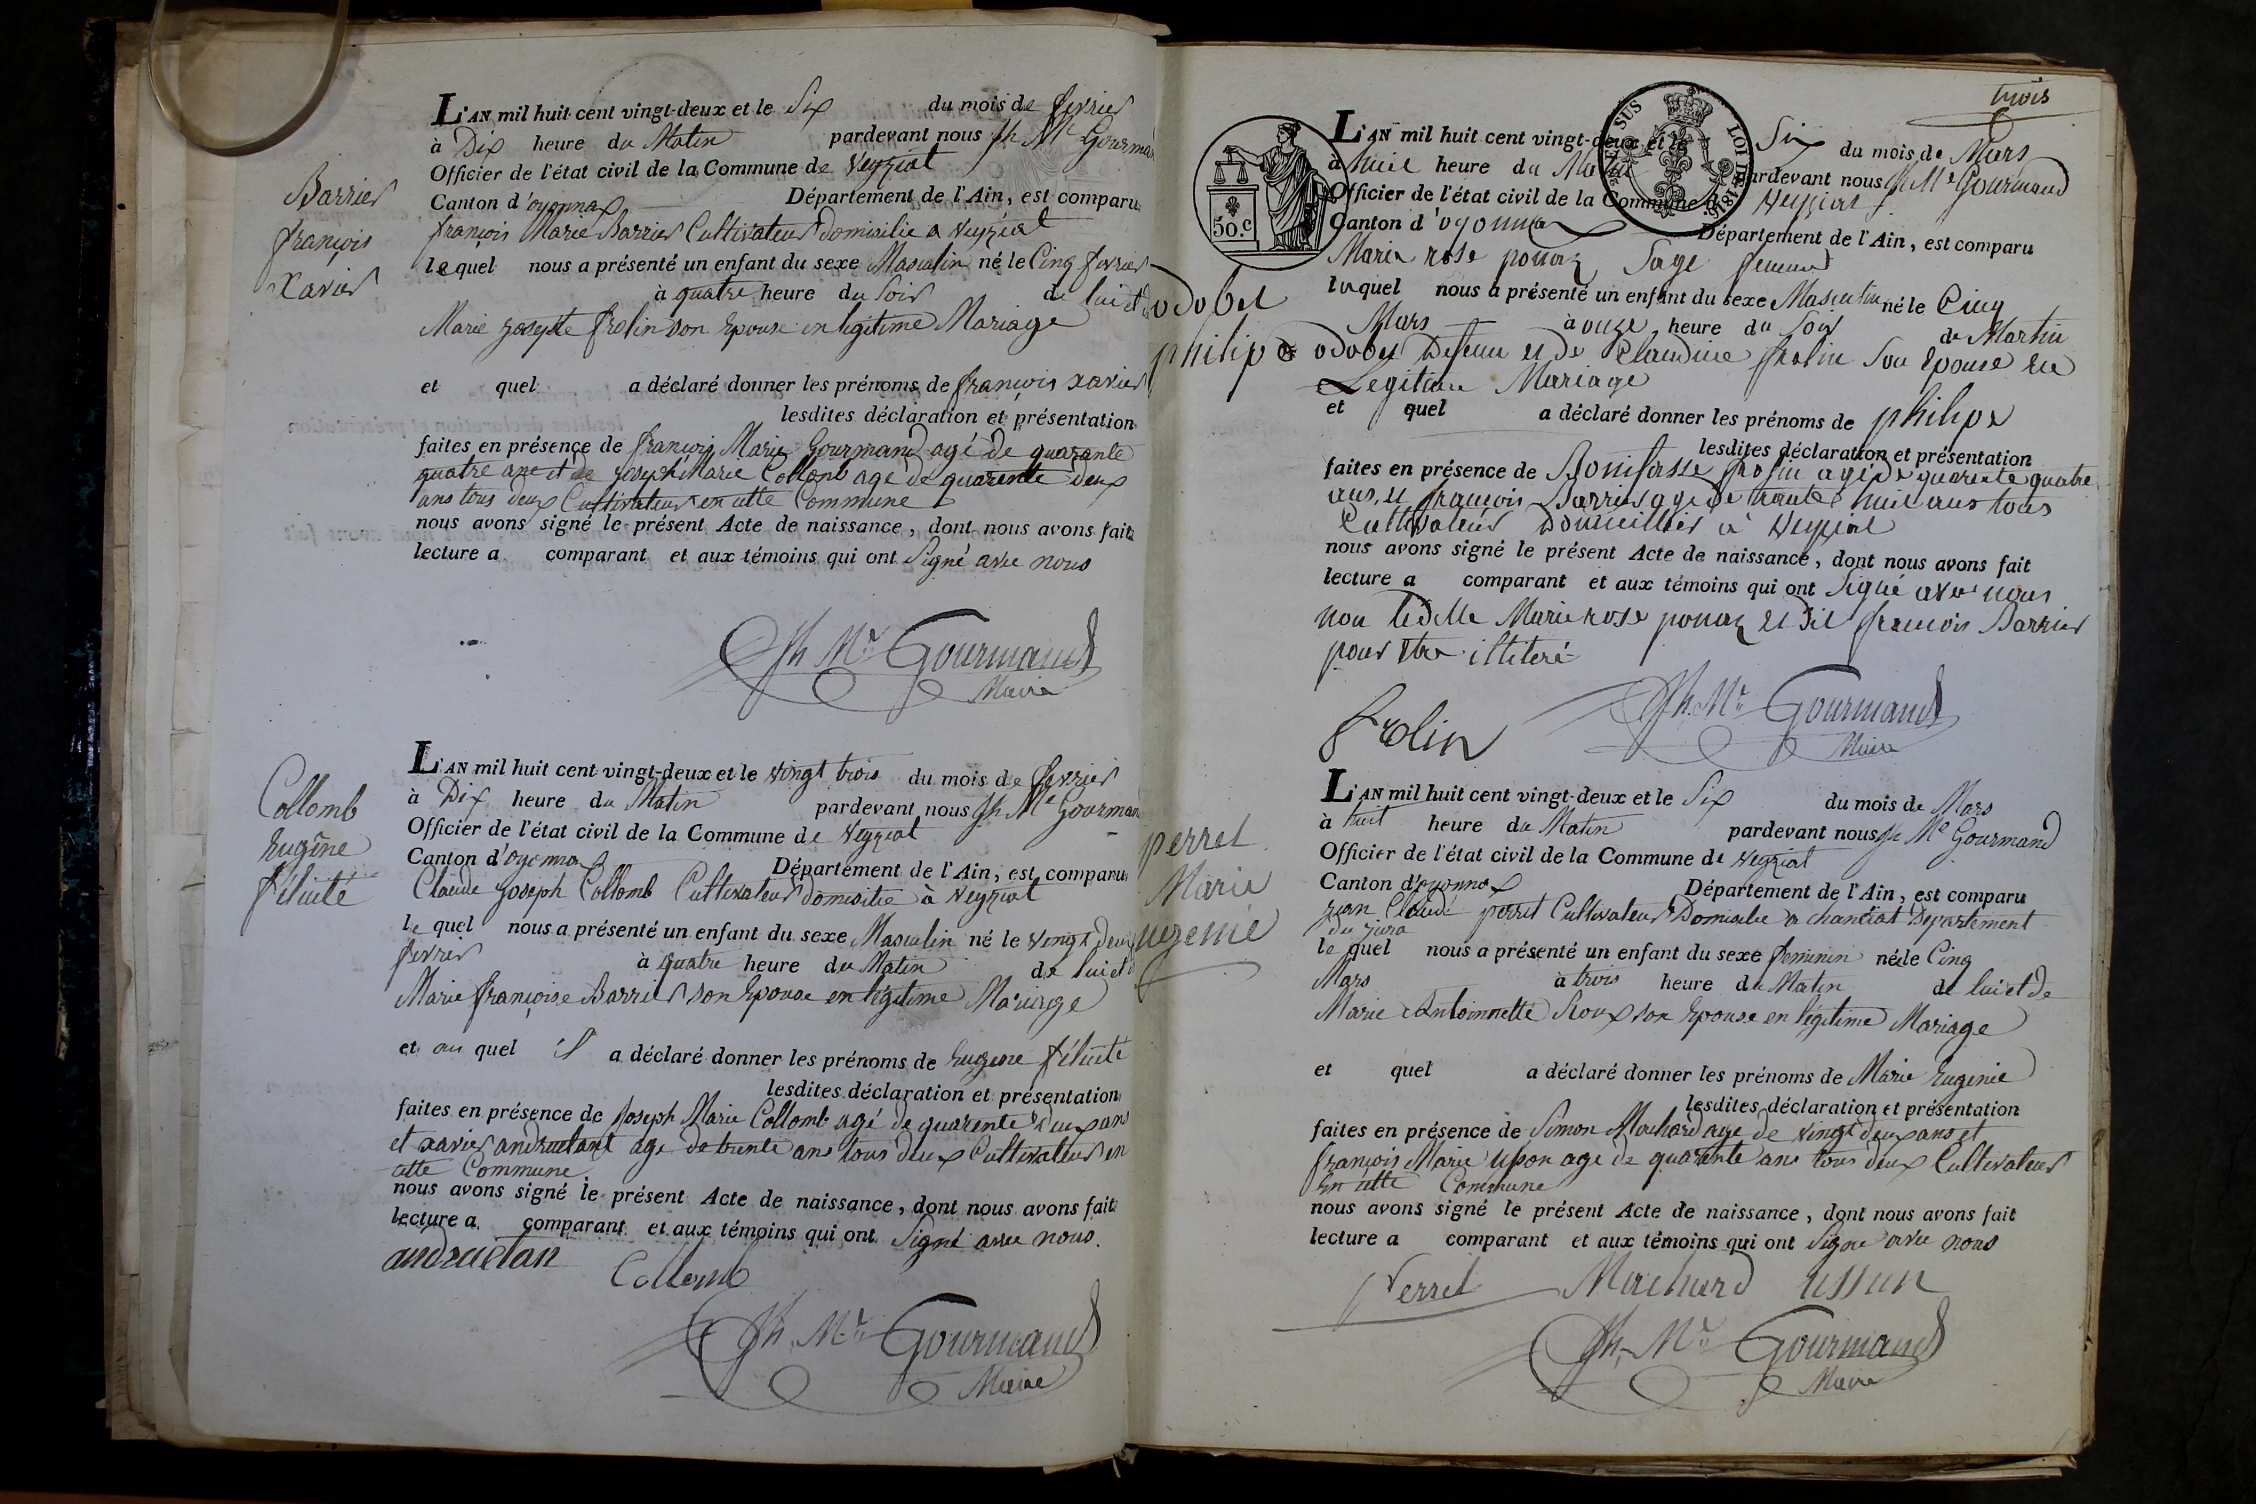 Barrier
françois
Xavier
L'AN mil huit cent vingt-deux et le Six du mois de fevrier
à Dix heure du Matin pardevant nous Jh Mie Gourmand
Officier de l'état civil de la Commune de Veyziat
Canton d'oyonnax Département de l'Ain, est comparu
françois Marie Barrier Cultivateur domicilié a Veyziat
lequel nous a présenté un enfant du sexe Masculin né le Cinq fevrier
à quatre heure du Soir de lui et de
Marie josephte frolin son Epouse en legitime Mariage
et quel a déclaré donner les prénoms de françois xavier
lesdites déclaration et présentation
faites en présence de françois Marie Gourmand agé de quarante
quatre ans et de joseph Marie Collomb agé de quarente deux
ans tous deux Cultivateur en cette Commune
nous avons signé le présent Acte de naissance, dont nous avons fait
lecture a comparant et aux témoins qui ont Signé avec nous
Jh Mie Gourmand
Maire
Collomb
Eugêne
félicité
L'AN mil huit cent vingt-deux et le vingt trois du mois de fevrier
à Dix heure du Matin pardevant nous Jh Mie Gourmand
Officier de l'état civil de la Commune de Veyziat
Canton d'oyonnax Département de l'Ain, est comparu
Claude joseph Collomb Cultivateur domicilié à Veyziat
le quel nous a présenté un enfant du sexe Masculin né le vingt deux
fevrier à quatre heure du Matin de lui et de
Marie françoise Barrier son Epouse en légitime Mariage
et au quel il a déclaré donner les prénoms de Eugene félicité
lesdites déclaration et présentation
faites en présence de Joseph Marie Collomb agé de quarente deux ans
et xavier andruetant agé de trente ans tous deux Cultivateur en
cette Commune
nous avons signé le présent Acte de naissance, dont nous avons fait
lecture a comparant et aux témoins qui ont Signé avec nous.
andruetan Collomb
Jh Mie Gourmand
Maire
trois
50.C
EN SUS
LOI DE 1816.
odobet
philipe
L'AN mil huit cent vingt-deux et le Six du mois de Mars
à huit heure du Matin pardevant nous Jh Mie Gourmand
Officier de l'état civil de la Commune de Veyziat
Canton d'oyonnax Département de l'Ain, est comparu
Marie rose ponaz Sage femme
laquel nous a présenté un enfant du sexe Masculin né le Cinq
Mars à onze heure du Soir de Martin
odobet Defunt et de Claudine frolin son Epouse en
Legitime Mariage
et quel a déclaré donner les prénoms de philipe
lesdites déclaration et présentation
faites en présence de Bonifasse frolin agé de quarente quatre
ans, et françois Barrier agé de trante huit ans tous
Cultivateur Domicilliés a Veyziat
nous avons signé le présent Acte de naissance, dont nous avons fait
lecture a comparant et aux témoins qui ont Signé avec nous
non ledelle Marie rose ponaz et dit francois Barrier
pour Etre illiteré
frolin Jh Mie Gourmand
Maire
perret
Marie
ugenie
L'AN mil huit cent vingt-deux et le Six du mois de Mars
à huit heure du Matin pardevant nous Jh Mie Gourmand
Officier de l'état civil de la Commune de Veyziat
Canton d'oyonnax Département de l'Ain, est comparu
jean Claude perret Cultivateur Domicilié a chanciat Département
du jura
le quel nous a présenté un enfant du sexe feminin né le Cinq
Mars à trois heure du Matin de lui et de
Marie Antoinnette Roux son Epouse en légitime Mariage
et quel a déclaré donner les prénoms de Marie Eugenie
lesdites déclaration et présentation
faites en présence de Simon Machard agé de vingt deux ans et
françois Marie agé de quarente ans tous deux Cultivateur
En cette Commune
nous avons signé le présent Acte de naissance, dont nous avons fait
lecture a comparant et aux témoins qui ont Signé avec nous
Perret Machard
Jh Mie Gourmand
Maire